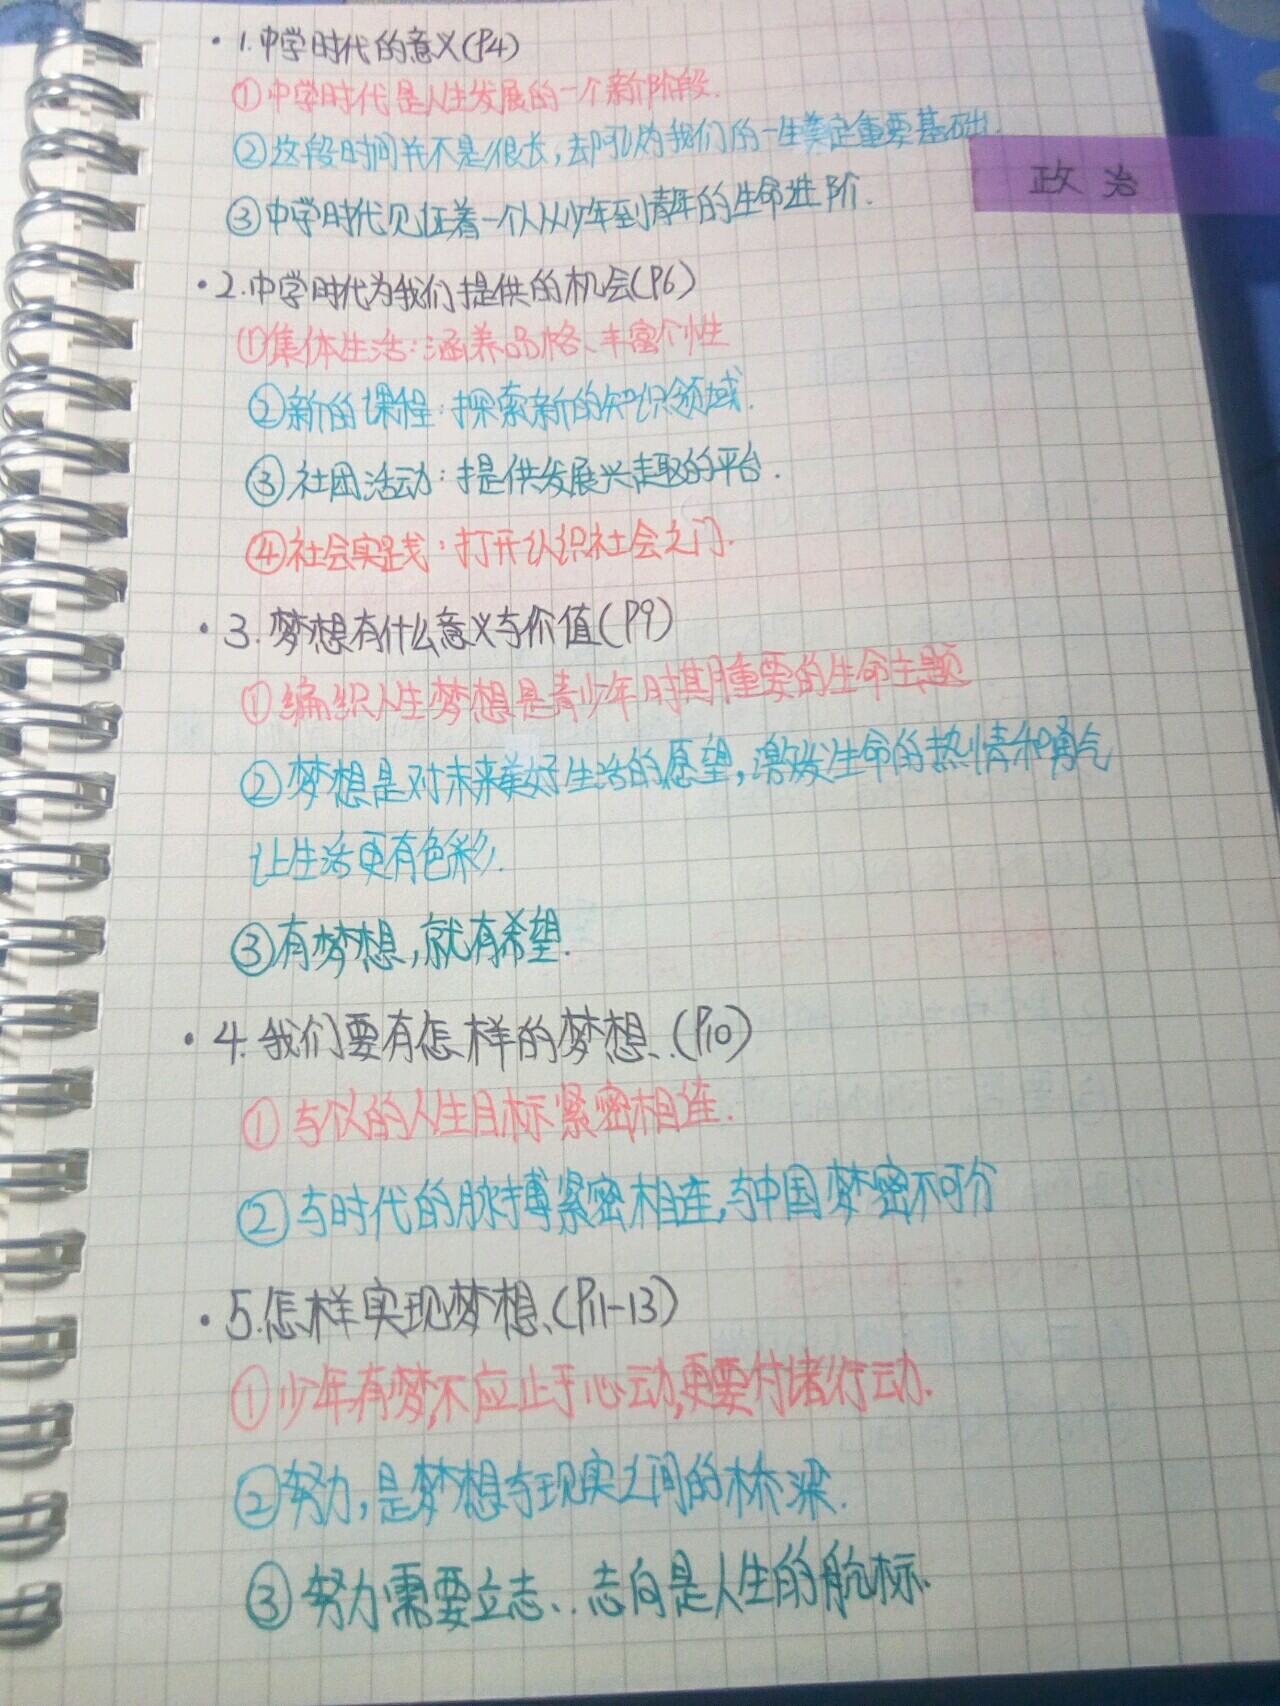 ·1.中学时代的意义(P4)
①中学时代是人生发展的一个新阶段.
②这段时间并不是很长,却可以为我们的一生奠定重要基础.
政治
③中学时代见证着一个人从少年到青年的生命进阶.
·2.中学时代为我们提供的机会(P6)
①集体生活:涵养品格、丰富个性
②新的课程:探索新的知识领域.
③社团活动:提供发展兴趣的平台.
④社会实践:打开认识社会之门.
·3.梦想有什么意义与价值(P9)
①编织人生梦想是青少年时期重要的生命主题
②梦想是对未来美好生活的愿望,激发生命的热情和勇气
让生活更有色彩.
③有梦想,就有希望.
·4.我们要有怎样的梦想、.(P10)
①与个人的人生目标紧密相连.
②与时代的脉搏紧密相连,与中国梦密不可分
·5.怎样实现梦想、(P11-13)
①少年有梦,不应止于心动,更要付诸行动.
②努力,是梦想与现实之间的桥梁.
③努力需要立志、.志向是人生的航标.